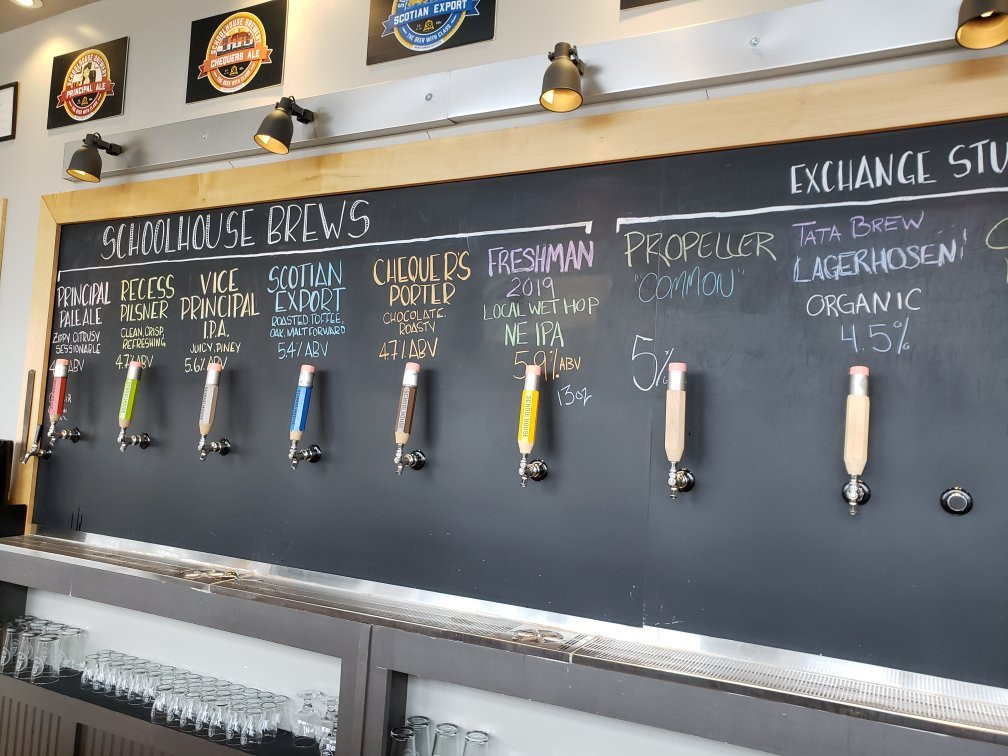 SCHOOLHOUSE BREWERY
PRINCIPAL ALE
THE BEER WITH CLASS
SCHOOLHOUSE BREWERY
CHEQUERS ALE
THE BEER WITH CLASS
SCOTIAN EXPORT
THE BEER WITH CLASS
SCHOOLHOUSE BREWS
PRINCIPAL
PALE ALE
ZIPPY CITRUSY
SESSIONABLE
ABV
RECESS
PILSNER
CLEAN, CRISP,
REFRESHING
4.7% ABV
VICE
PRINCIPAL
I.P.A.
JUICY, PINEY
5.6% ABV
SCOTIAN
EXPORT
ROASTED TOFFEE,
OAK, MALT FORWARD
5.4% ABV
CHEQUER'S
PORTER
CHOCOLATE
ROASTY
4.7% ABV
FRESHMAN
2019
LOCAL WET HOP
NE IPA
5.9% ABV
13oz
EXCHANGE STU
PROPELLER
"COMMON"
5%
TATA BREW
LAGERHOSEN!
ORGANIC
4.5%